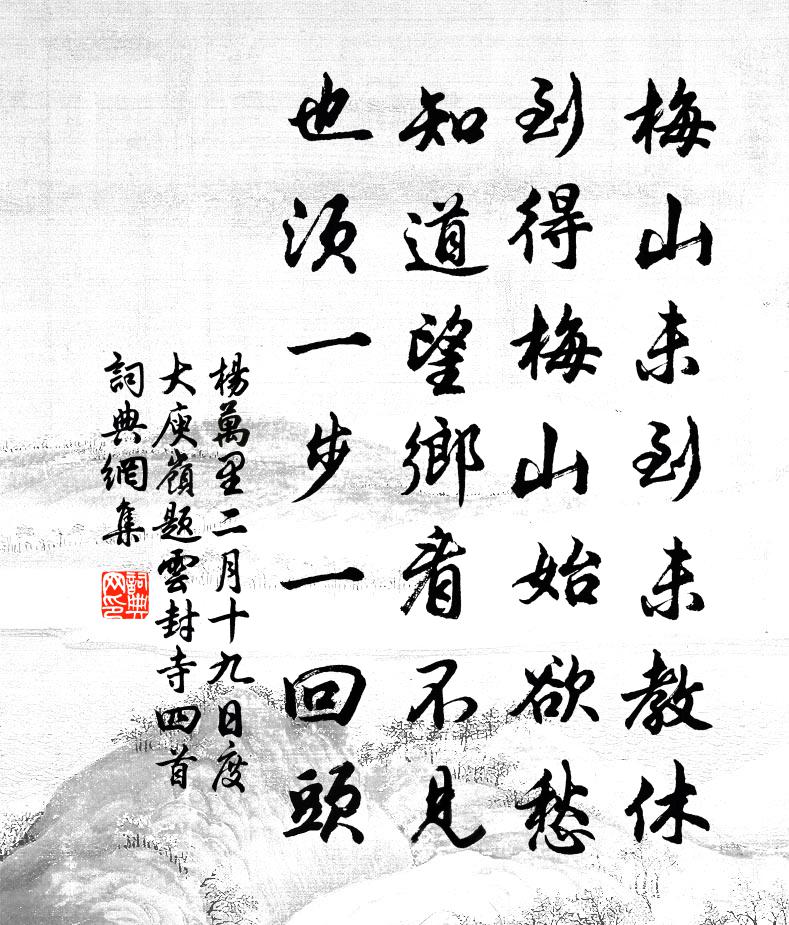 梅山未到未教休
到得梅山始欲愁
知道望鄉看不見
也須一步一回頭
楊萬里二月十九日度
大庾嶺題雲封寺四首
詞典網集
詞典網印